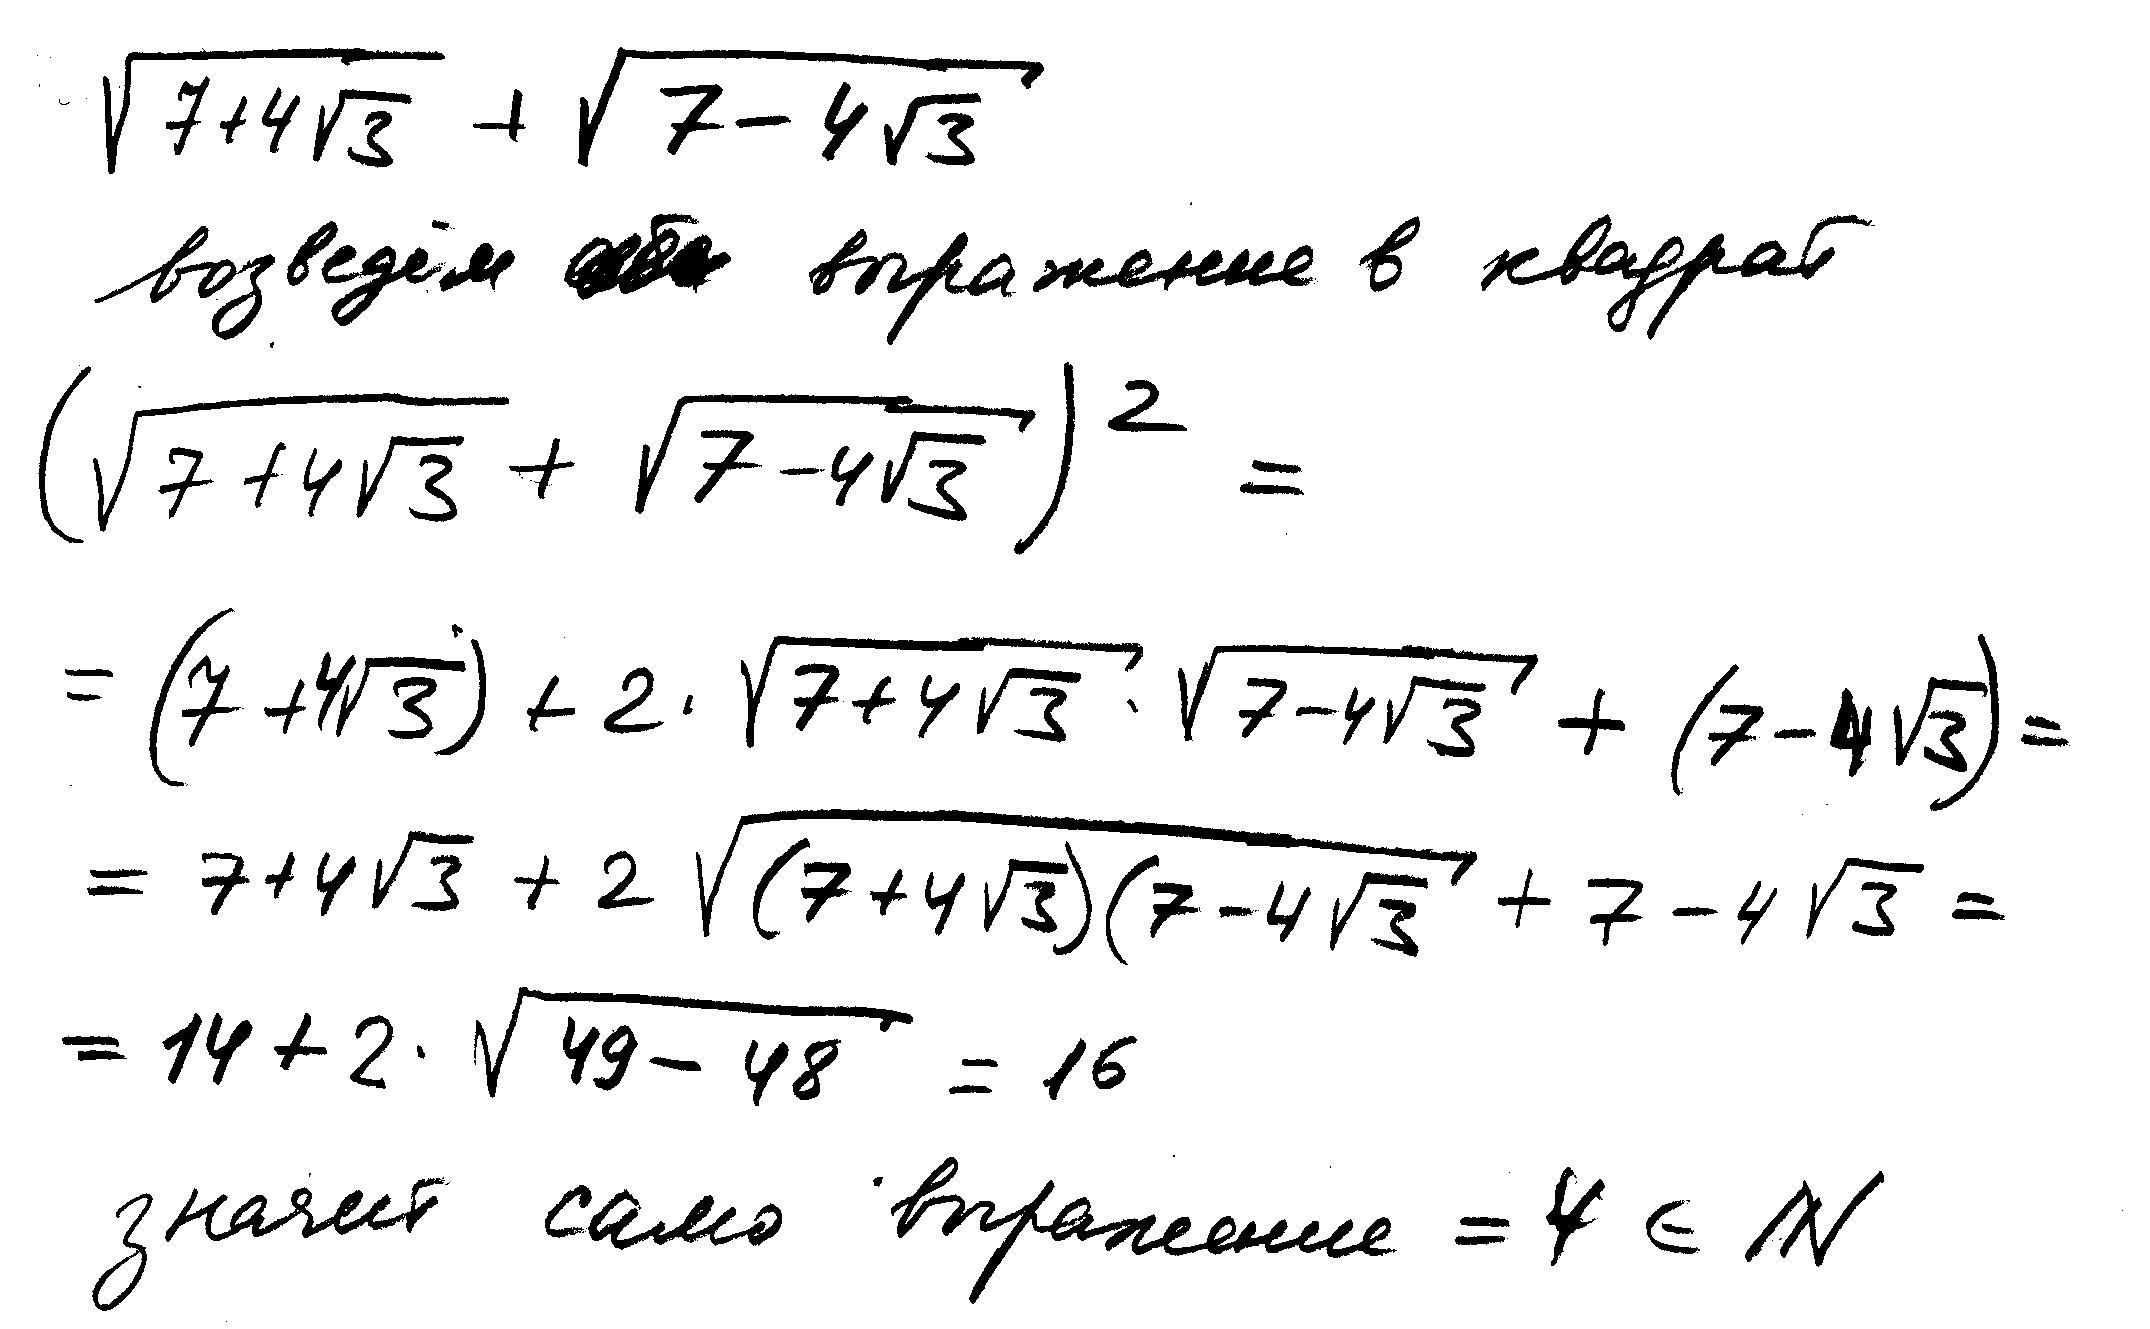 √(7+4√3) + √(7-4√3)
возведём выражение в квадрат
(√(7+4√3) + √(7-4√3))² =
= (7+4√3) + 2·√(7+4√3)·√(7-4√3) + (7-4√3) =
= 7+4√3 + 2√((7+4√3)(7-4√3) + 7-4√3 =
= 14+2·√(49-48) = 16
значит само выражение = 4 ∈ ℕ